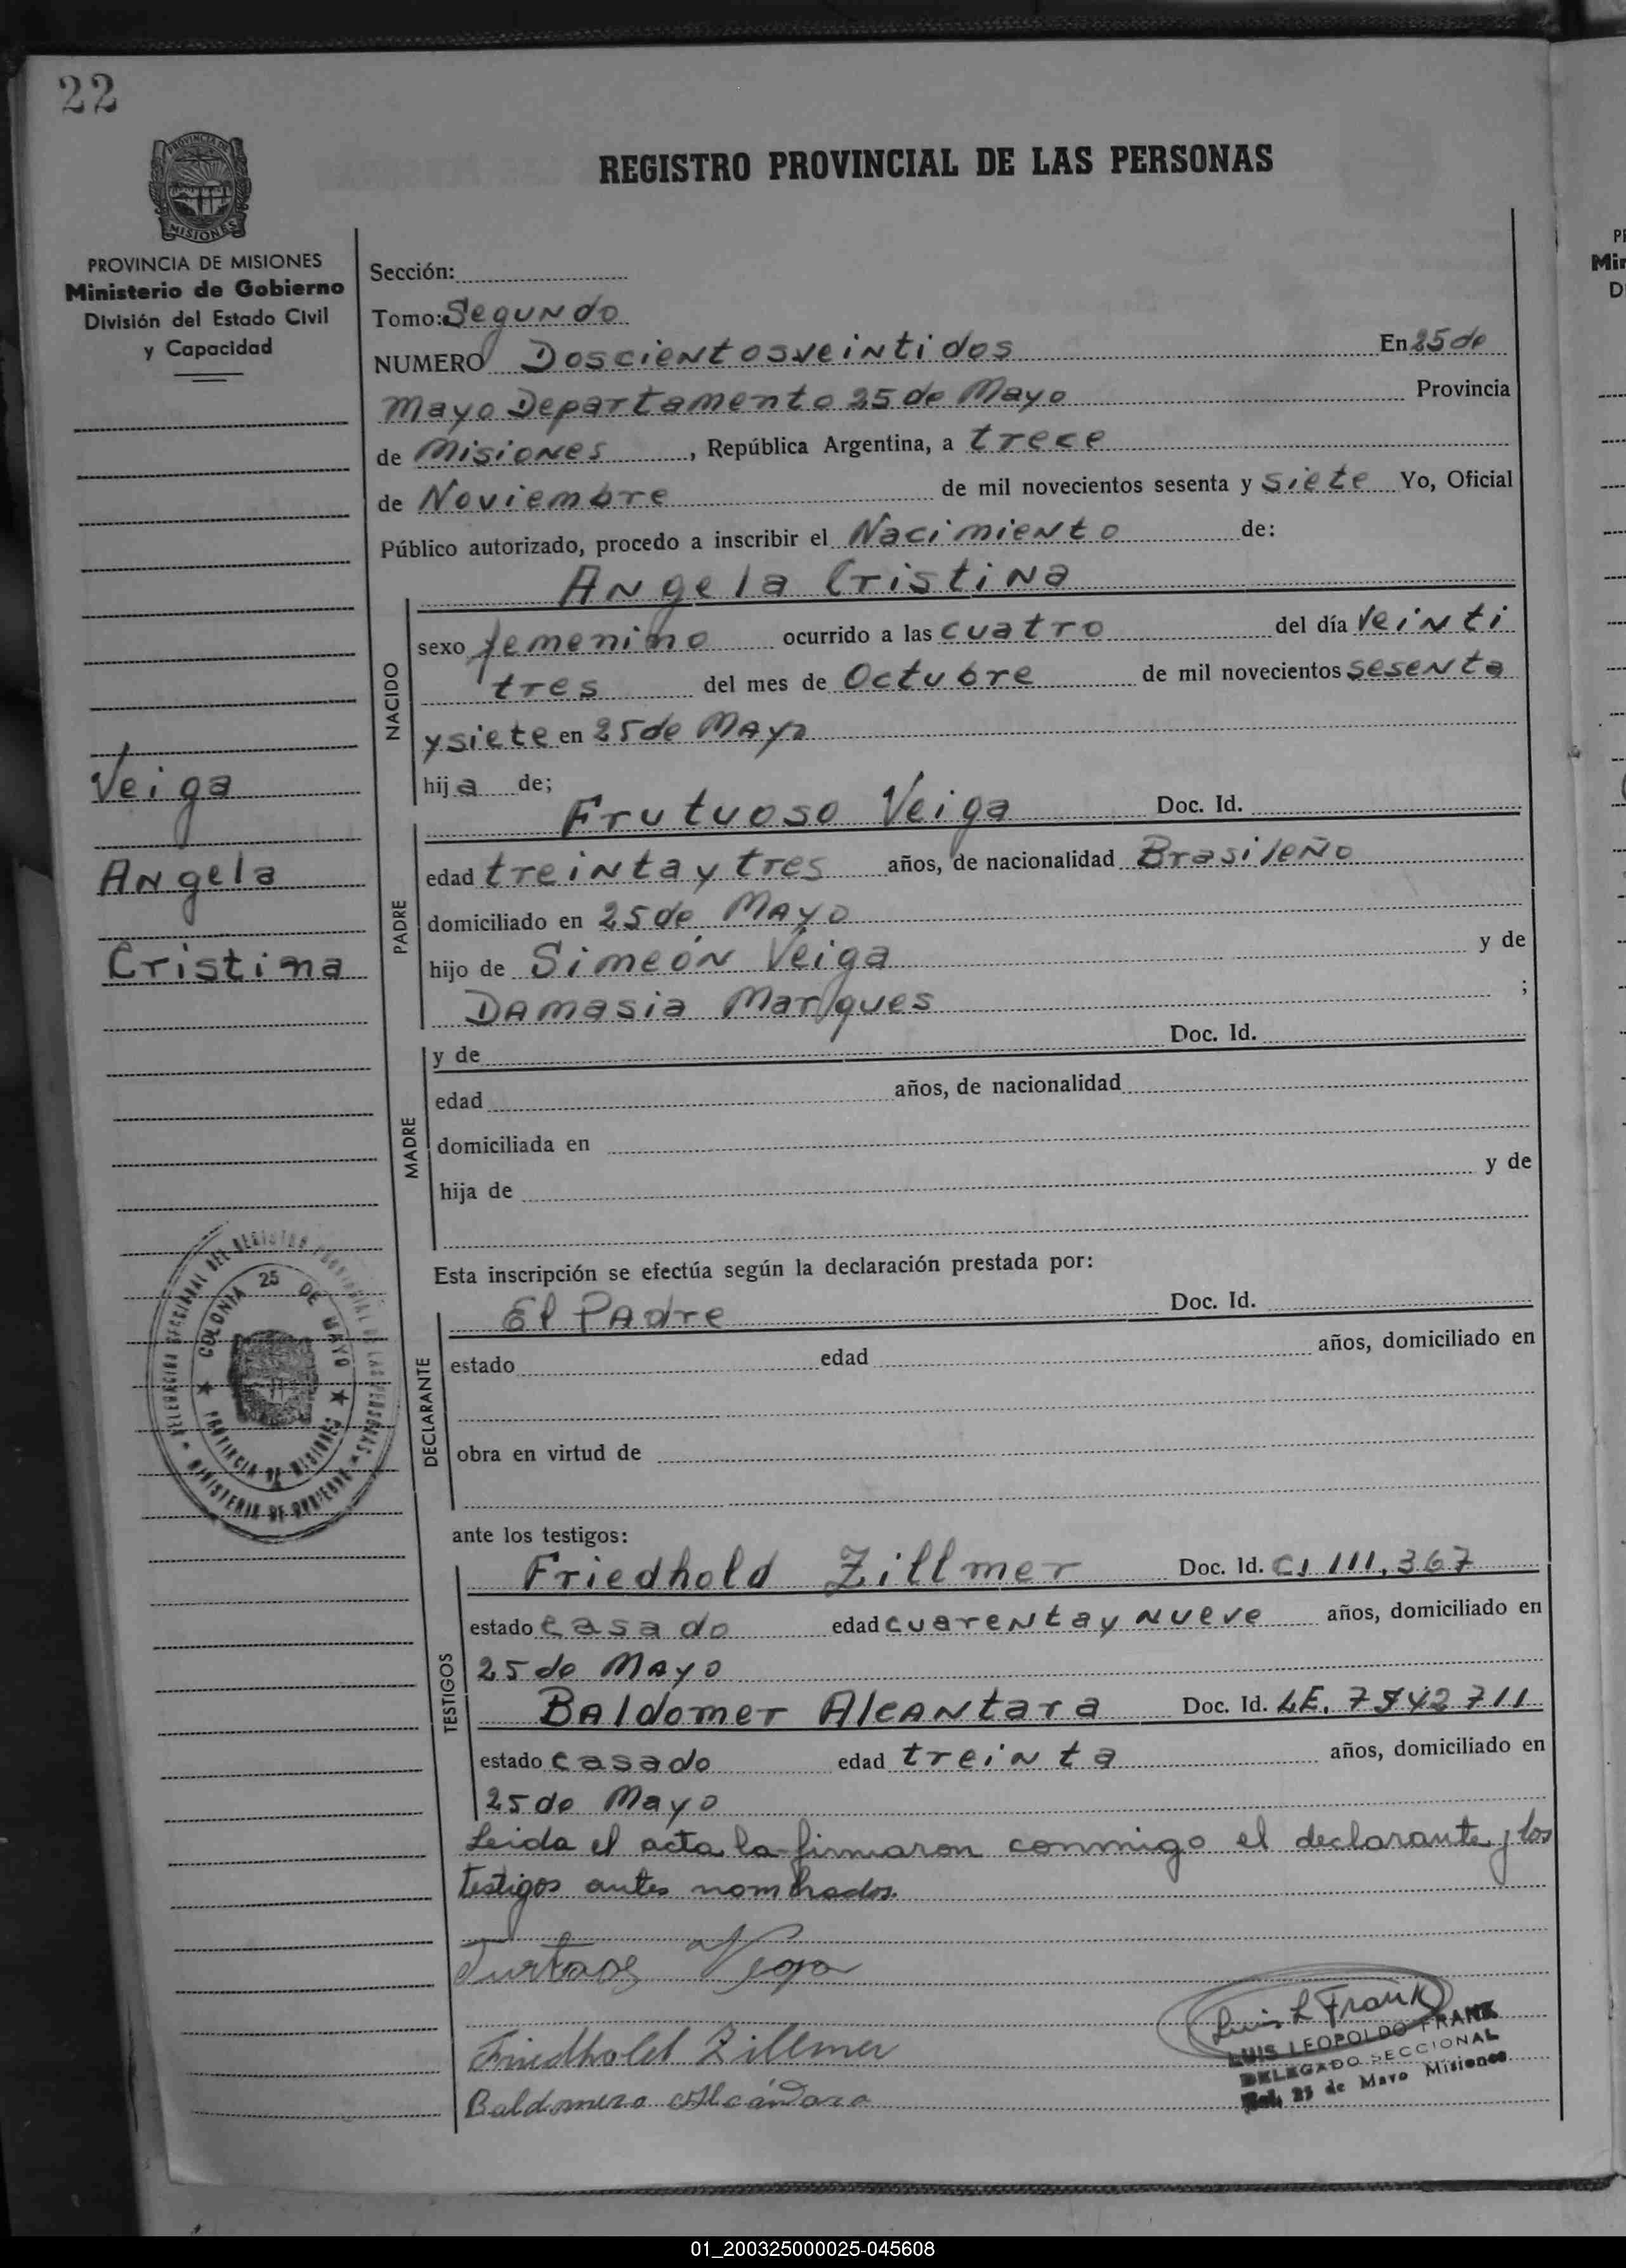 22
REGISTRO PROVINCIAL DE LAS PERSONAS
PROVINCIA DE MISIONES
Ministerio de Gobierno
División del Estado Civil
y Capacidad
Sección:
Tomo: Segundo
NUMERO Doscientos veintidos En 25 de
Mayo Departamento 25 de Mayo Provincia
de Misiones, República Argentina, a trece
de Noviembre de mil novecientos sesenta y siete Yo, Oficial
Público autorizado, procedo a inscribir el Nacimiento de:
Angela Cristina
NACIDO
sexo femenino ocurrido a las cuatro del día veinti
tres del mes de Octubre de mil novecientos sesenta
y siete en 25 de Mayo
hija de;
Veiga
Angela
Cristina
PADRE
Frutuoso Veiga Doc. Id.
edad treinta y tres años, de nacionalidad Brasileño
domiciliado en 25 de Mayo
hijo de Simeón Veiga y de
Damasia Marques ;
MADRE
y de Doc. Id.
edad años, de nacionalidad
domiciliada en
hija de y de
Esta inscripción se efectúa según la declaración prestada por:
DECLARANTE
El Padre Doc. Id.
estado edad años, domiciliado en
obra en virtud de
COLONIA 25 DE MAYO
PROVINCIA DE MISIONES
DELEGACION SECCIONAL DEL REGISTRO PROVINCIAL DE LAS PERSONAS
MINISTERIO DE GOBIERNO
ante los testigos:
TESTIGOS
Friedhold Zillmer Doc. Id. CI 111,367
estado casado edad cuarenta y nueve años, domiciliado en
25 de Mayo
Baldomer Alcantara Doc. Id. LE. 7542711
estado casado edad treinta años, domiciliado en
25 de Mayo
Leida el acta la firmaron conmigo el declarante y los
testigos antes nombrados.
Friedhold Zillmer
Luis L Frank
LUIS LEOPOLDO FRANK
DELEGADO SECCIONAL
Col. 25 de Mayo Misiones
Baldomero Alcántara
01_200325000025-045608